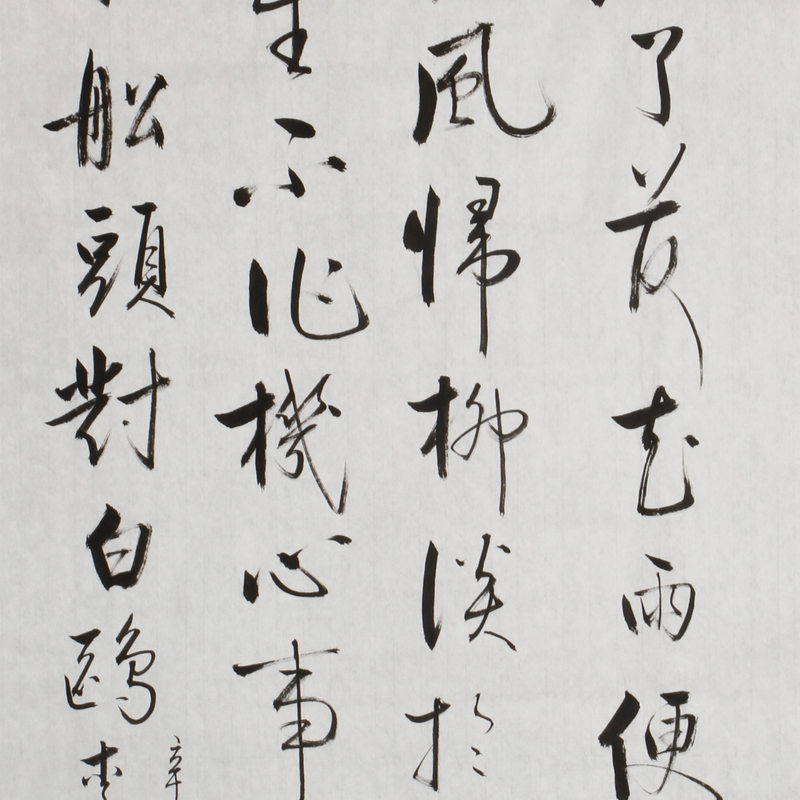 了荷花雨便
風帰柳淡於
生不作機心事
船頭對白鷗
辛